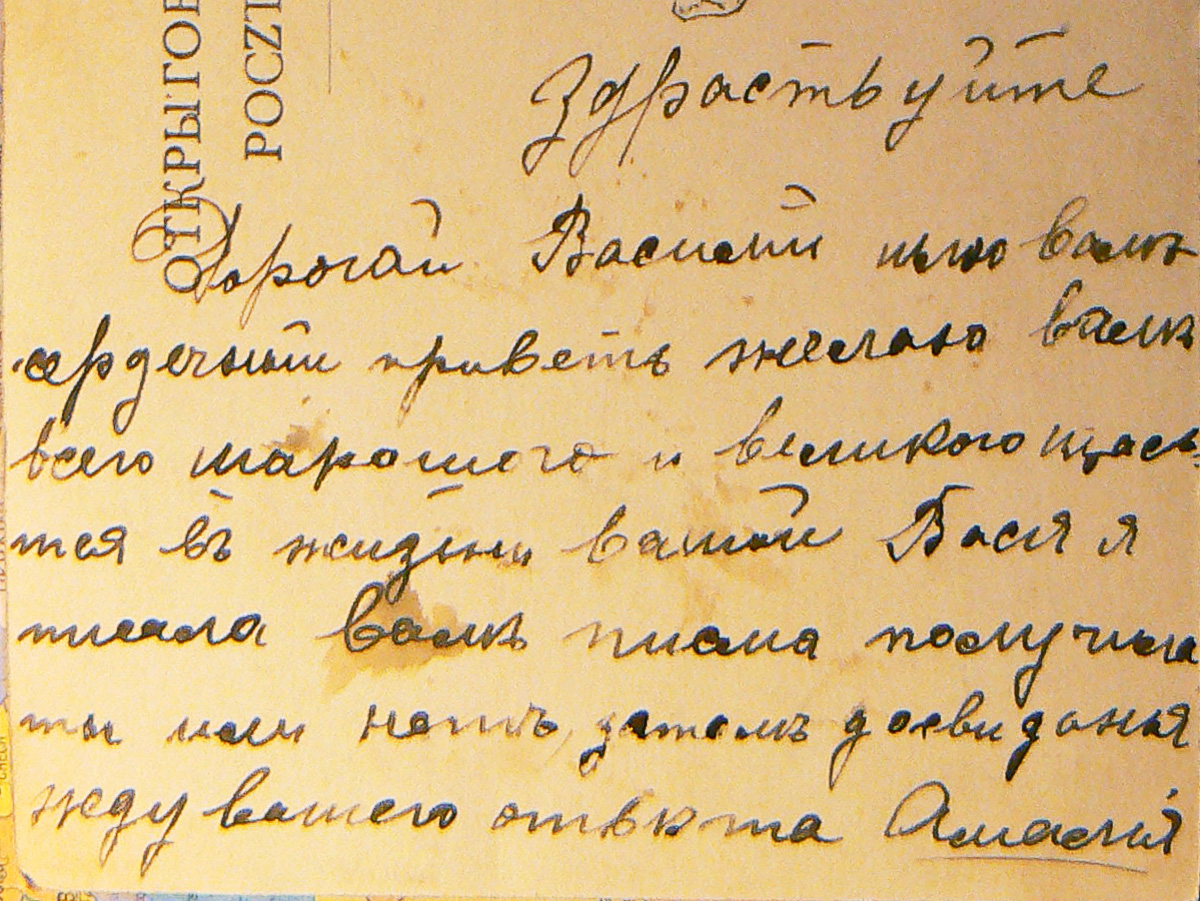 ОТКРЫТО
POCZT
Здраствуйте
Дорогай Василий шлю вамъ
сердечный приветъ желаю вамъ
всего харошого и великого щась
тея въ жизни вашай Вася я
писала вамъ писма получила
ты или нетъ, затемъ досвиданья
жду вашего отвѣта Амалия